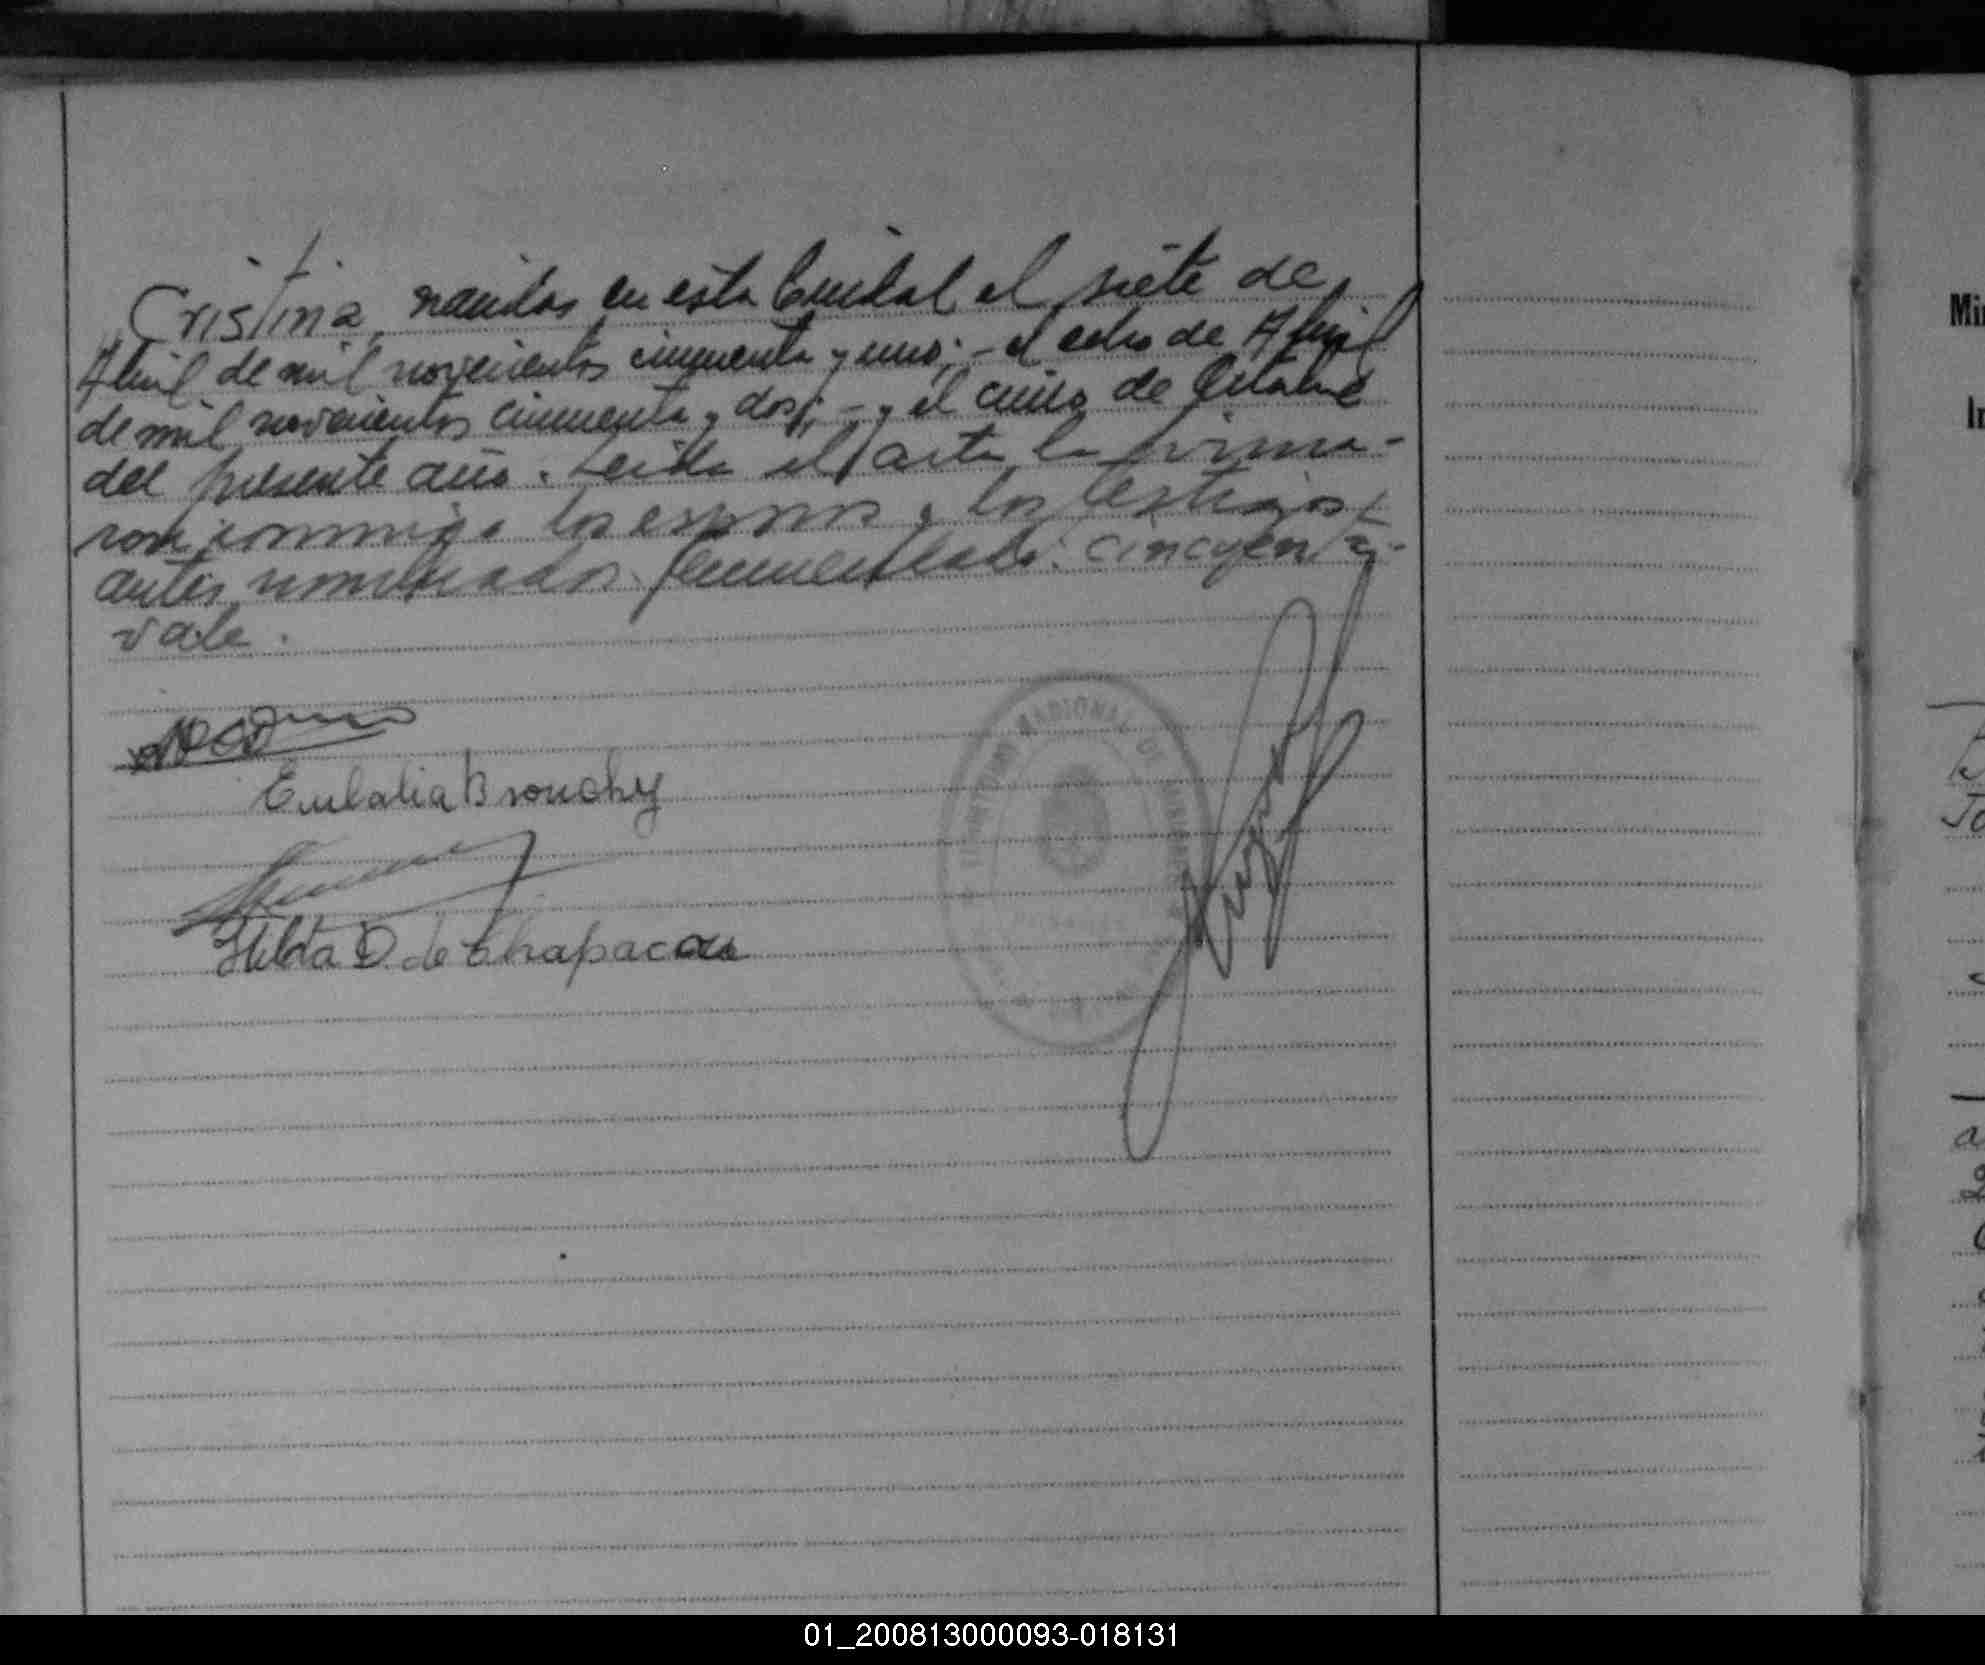 Cristina, nacidas en esta Ciudad el siete de
Abril de mil novecientos cincuenta y uno; - el ocho de Abril
de mil novecientos cincuenta y dos; - y el cinco de Octubre
del presente año. Leida el acta, la firma-
ron conmigo los esposos y los testigos
antes nombrados. Enmendado: cincuenta-
vale.
Eulalia Bronchy
Hilda D. de Chapacou
TERRITORIO NACIONAL DE MISIONES
POSADAS
Mi
I
01_200813000093-018131